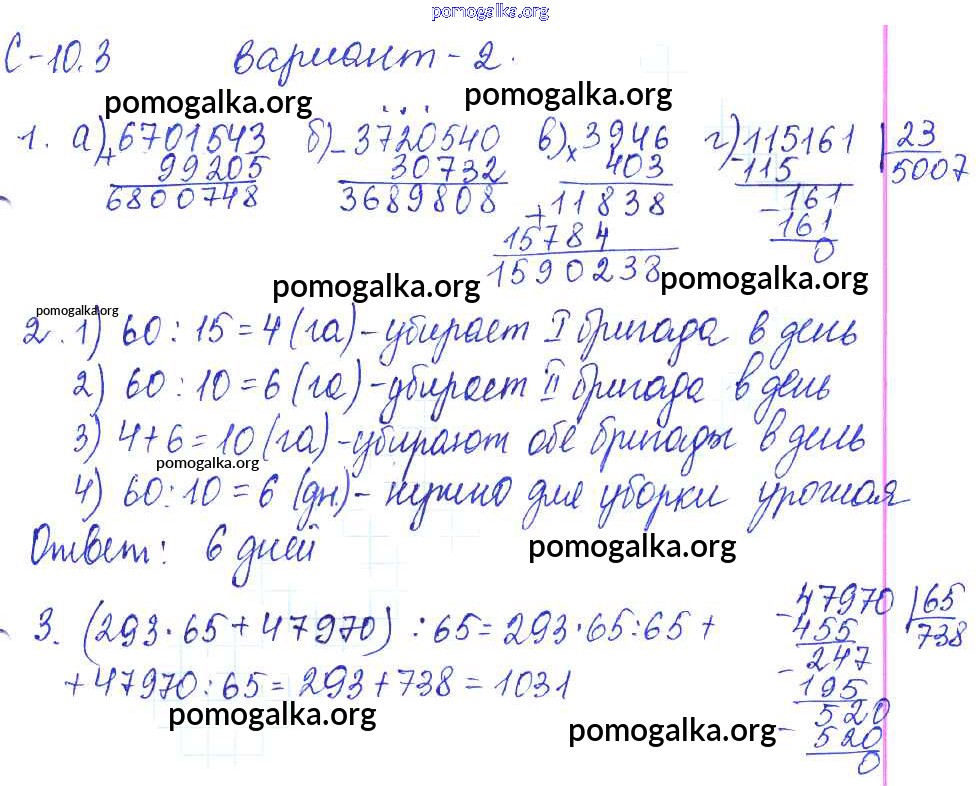 pomogalka.org
С-10.3 Вариант-2.
pomogalka.org pomogalka.org
1. а) 6701543 б) 3720540 в) 3946 г) 115161 | 23
+ 99205 - 30732 × 403 - 115 5007
6800748 3689808 11838 - 161
+ 15784 161
1590238 0
pomogalka.org pomogalka.org
pomogalka.org
2. 1) 60 : 15 = 4 (га) - убирает I бригада в день
2) 60 : 10 = 6 (га) - убирает II бригада в день
3) 4 + 6 = 10 (га) - убирают обе бригады в день
pomogalka.org
4) 60 : 10 = 6 (дн) - нужно для уборки урожая
Ответ: 6 дней
pomogalka.org
3. (293 · 65 + 47970) : 65 = 293 · 65 : 65 +
+ 47970 : 65 = 293 + 738 = 1031
- 47970 | 65
455 738
- 247
195
- 520
520
0
pomogalka.org pomogalka.org